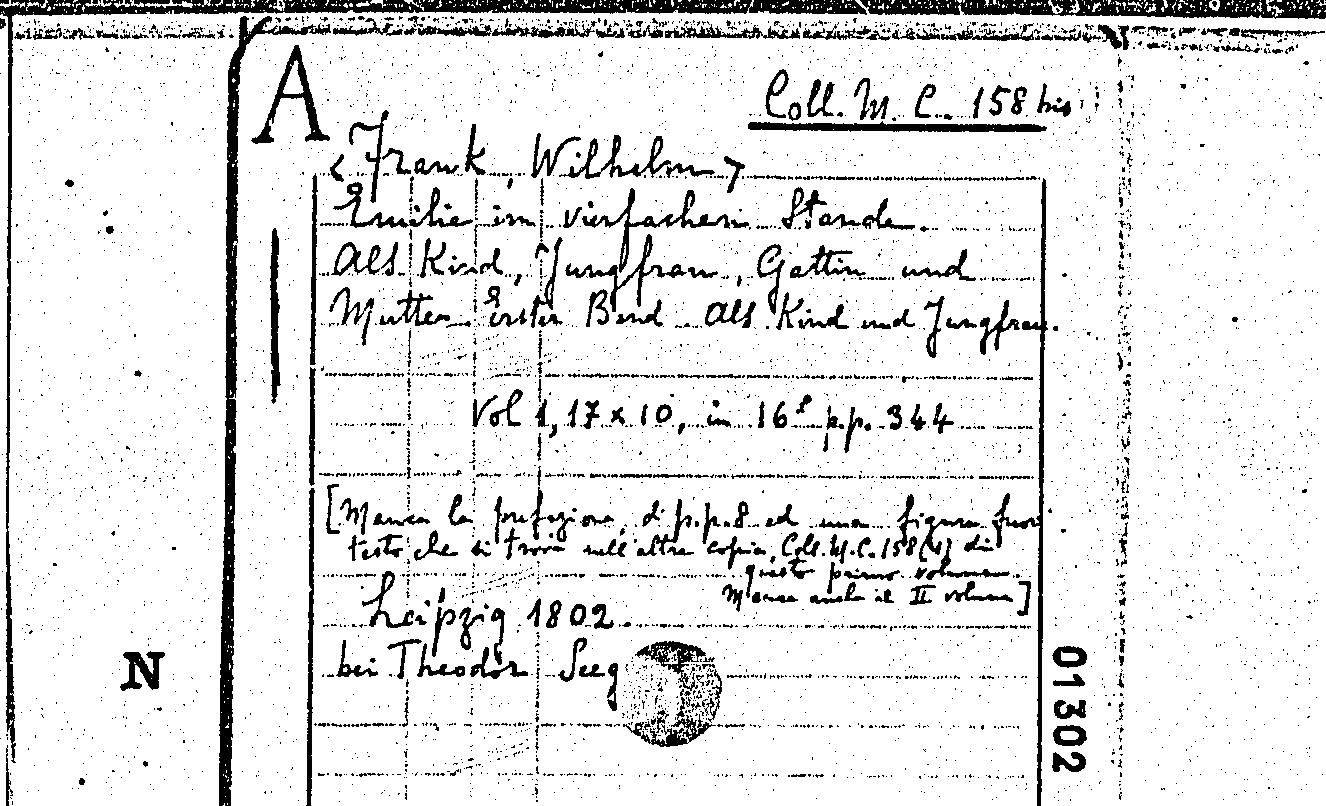 A
Coll. M. C. 158 bis
<Frank, Wilhelm>
Emilie im vierfachen Stande.
Als Kind, Jungfrau, Gattin und
Mutter. Erster Band. Als Kind und Jungfrau.
Vol 1, 17 x 10, in 16º pp. 344
[Manca la prefazione, di p.p. 8 ed una figura fuori
testo che si trova nell'altra copia, Coll. M.C. 158 (1) di
questo primo volume.
Manca anche il II volume]
Leipzig 1802.
bei Theodor Seeg
N
01302